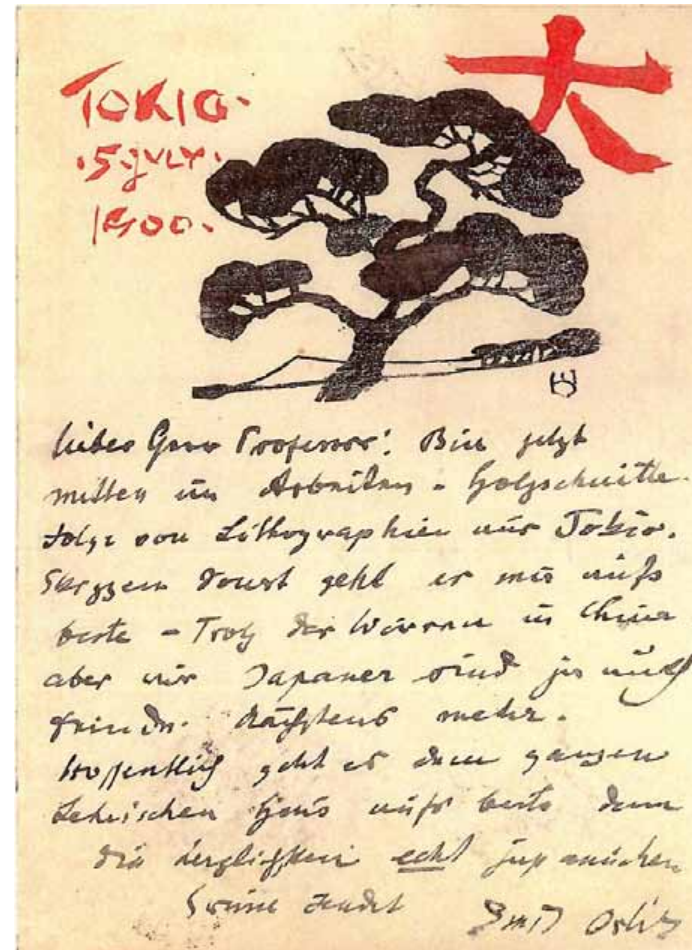 TOKIO.
.5.JULY.
1900.
大
Lieber Herr Professor! Bin jetzt
mitten im Arbeiten – Holzschnitte.
Folge von Lithographien aus Tokio.
Skizzen sonst geht es mir aufs
beste – Trotz der Wirren in China
aber wir Japaner sind ja auch
Nächstens mehr.
Hoffentlich geht es dem ganzen
Lehrschen Haus aufs beste dem
die herzlichsten echt japanischen
Grüsse sendet Emil Orlik